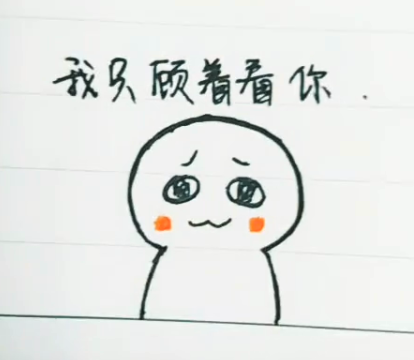 我只顾着看你.